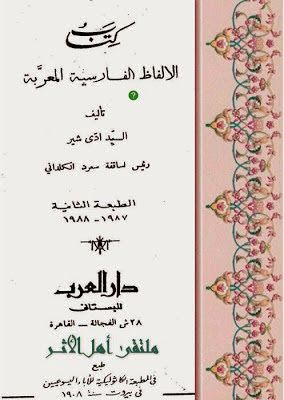 كتاب
الالفاظ الفارسية المعرَّبة
تأليف
السيّد ادّى شير
رئيس اساقفة سعرد الكلداني
الطبعة الثانية
١٩٨٧ - ١٩٨٨
دار العرب
للبستاني
٢٨ ش الفجالة - القاهرة
ملتقى أهل الأثر
طبع
في المطبعة الكاثوليكية للآباء اليسوعيين
في بيروت سنة ١٩٠٨